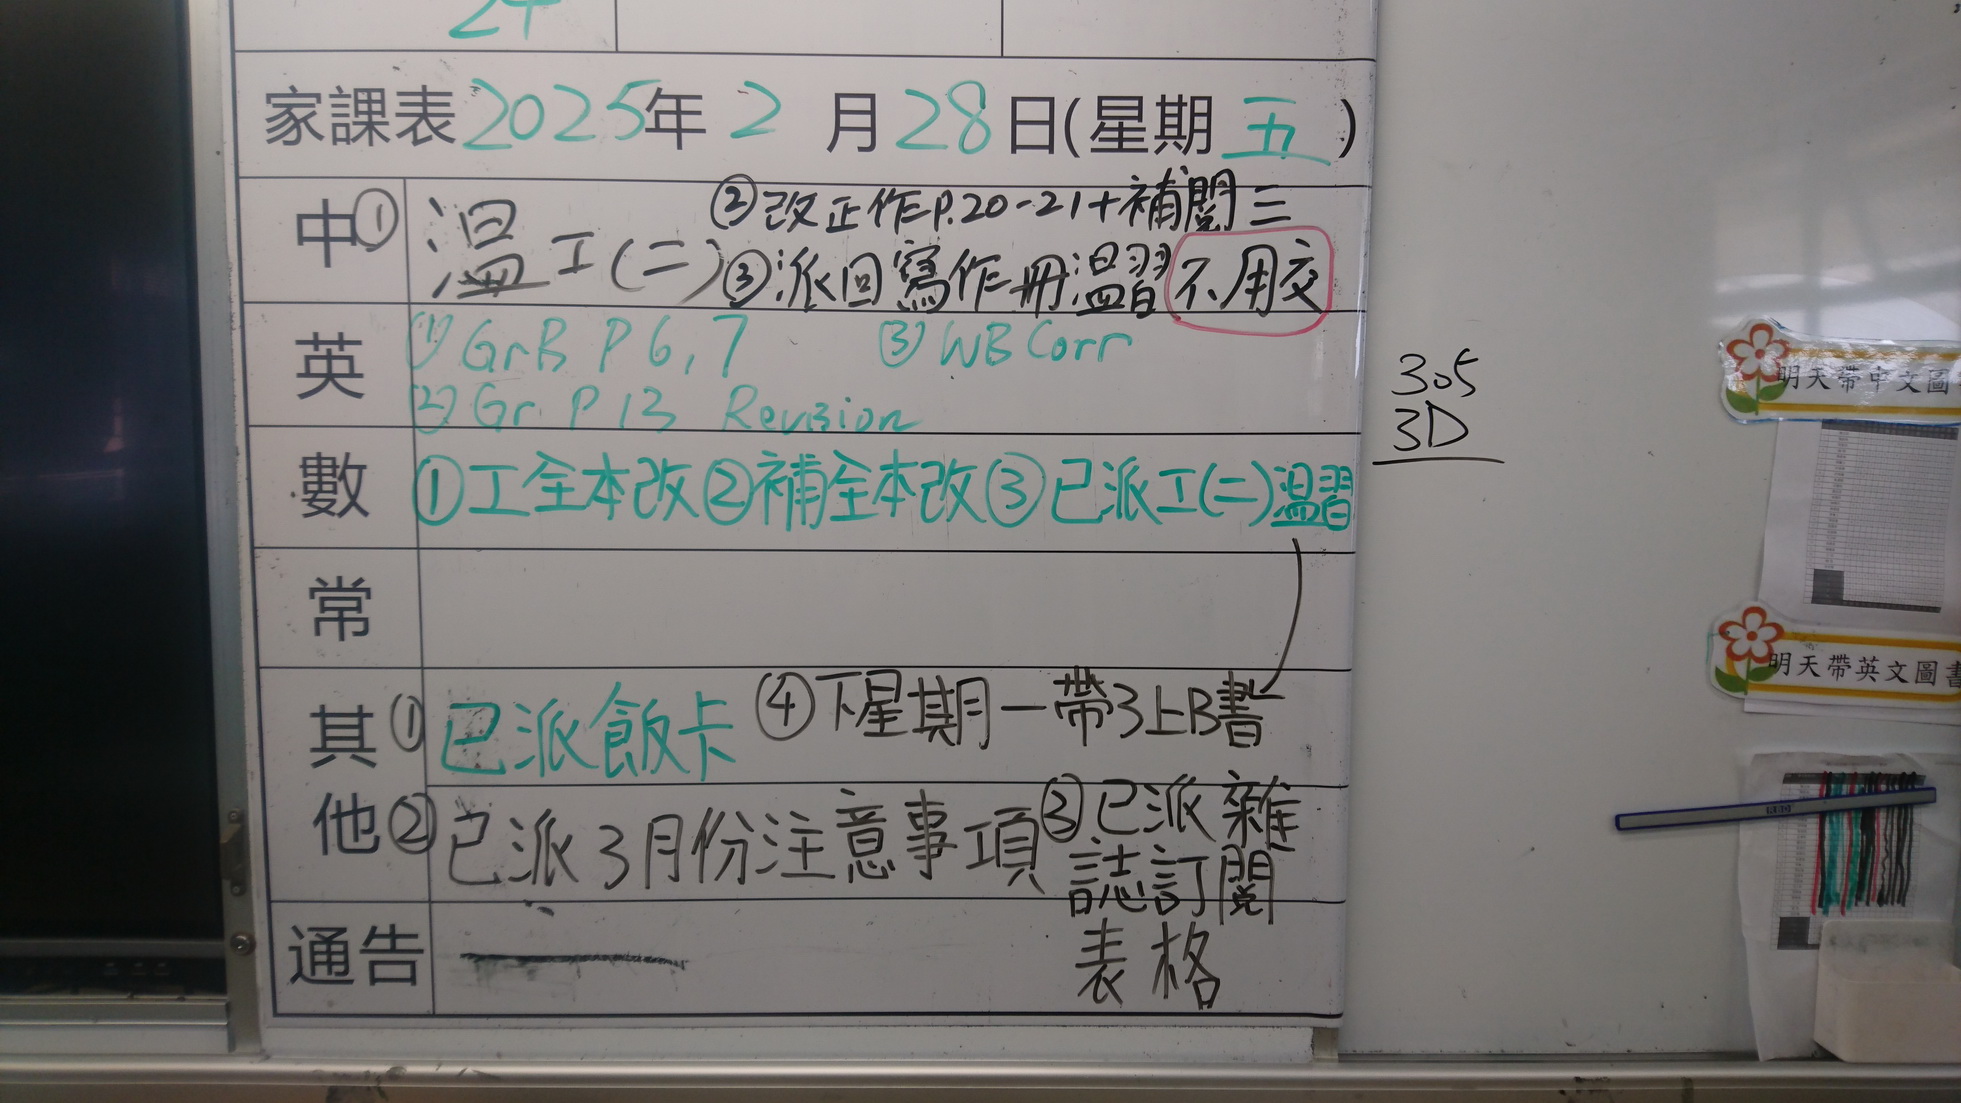 24
家課表2025年2月28日(星期五)
中①溫工(二)②改正作P.20-21+補閱三
③派回寫作冊溫習不用交
英(1)GrB P 6,7 (3)WB Corr
(2)Gr P 13 Revision
數①工全本改②補全本改③已派工(二)溫習
常
其他①已派飯卡④下星期一帶3上B書
②已派3月份注意事項③已派雜
誌訂閱
表格
通告
305
3D
明天帶中文圖
明天帶英文圖書